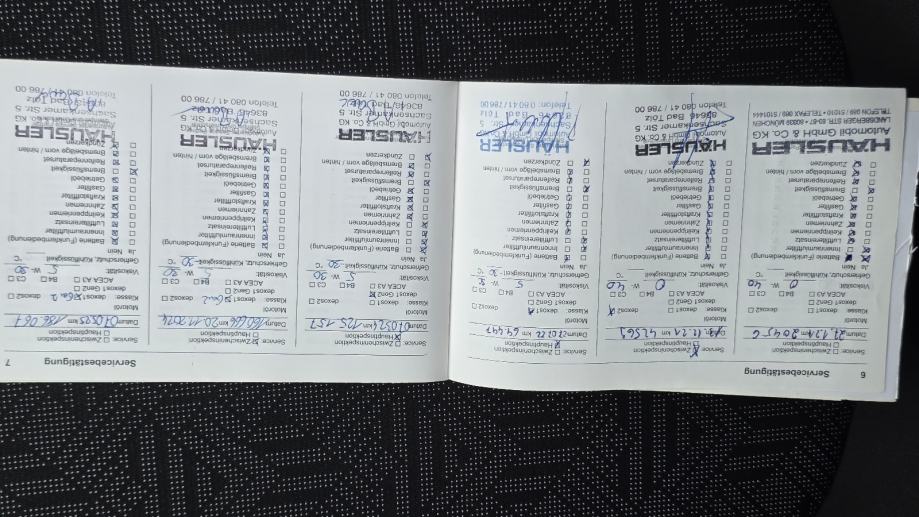 6 Servicebestätigung
Service: Zwischeninspektion
Hauptinspektion
Datum km
Motoröl
Klasse: dexos1 dexos2
dexos1 Gen2
ACEA A3 B4 C3
Viskosität 0 W- 40
Gefrierschutz, Kühlflüssigkeit °C
Ja Nein
Batterie (Funkfernbedienung)
Innenraumluftfilter
Luftfiltereinsatz
Keilrippenriemen
Zahnriemen
Kraftstofffilter
Gasfilter
Getriebeöl
Bremsflüssigkeit
Reifenreparaturset
Bremsbeläge vorn / hinten
Zündkerzen
HÄUSLER
Automobil GmbH & Co. KG
LANDSBERGER STR. 83-87 • 80339 MÜNCHEN
Service: Zwischeninspektion
Hauptinspektion
Datum km
Motoröl
Klasse: dexos1 dexos2
dexos1 Gen2
ACEA A3 B4 C3
Viskosität 0 W- 40
Gefrierschutz, Kühlflüssigkeit °C
Ja Nein
Batterie (Funkfernbedienung)
Innenraumluftfilter
Luftfiltereinsatz
Keilrippenriemen
Zahnriemen
Kraftstofffilter
Gasfilter
Getriebeöl
Bremsflüssigkeit
Reifenreparaturset
Bremsbeläge vorn / hinten
Zündkerzen
HÄUSLER
Automobil GmbH & Co. KG
Sachsenkamer Str. 5
83646 Bad Tölz
Telefon 080 41 / 786 00
Service: Zwischeninspektion
Hauptinspektion
Datum km 64447
Motoröl
Klasse: dexos1 dexos2
dexos1 Gen2
ACEA A3 B4 C3
Viskosität 5 W-
Gefrierschutz, Kühlflüssigkeit °C
Ja Nein
Batterie (Funkfernbedienung)
Innenraumluftfilter
Luftfiltereinsatz
Keilrippenriemen
Zahnriemen
Kraftstofffilter
Gasfilter
Getriebeöl
Bremsflüssigkeit
Reifenreparaturset
Bremsbeläge vorn / hinten
Zündkerzen
HÄUSLER
Automobil GmbH & Co. KG
Sachsenkamer Str. 5
83646 Bad Tölz
Telefon 080 41 / 786 00
Servicebestätigung 7
Service: Zwischeninspektion
Hauptinspektion
Datum 070524 km 125.152
Motoröl
Klasse: dexos1 dexos2
dexos1 Gen2
ACEA A3 B4 C3
Viskosität 5 W- 30
Gefrierschutz, Kühlflüssigkeit -30 °C
Ja Nein
Batterie (Funkfernbedienung)
Innenraumluftfilter
Luftfiltereinsatz
Keilrippenriemen
Zahnriemen
Kraftstofffilter
Gasfilter
Getriebeöl
Bremsflüssigkeit
Reifenreparaturset
Bremsbeläge vorn / hinten
Zündkerzen
HÄUSLER
Automobil GmbH & Co. KG
Sachsenkamer Str. 5
83646 Bad Tölz
Telefon 080 41 / 786 00
Service: Zwischeninspektion
Hauptinspektion
Datum km 20.11.2024
Motoröl
Klasse: dexos1 Gen2 dexos2
dexos1 Gen2
ACEA A3 B4 C3
Viskosität 5 W- 30
Gefrierschutz, Kühlflüssigkeit -30 °C
Ja Nein
Batterie (Funkfernbedienung)
Innenraumluftfilter
Luftfiltereinsatz
Keilrippenriemen
Zahnriemen
Kraftstofffilter
Gasfilter
Getriebeöl
Bremsflüssigkeit
Reifenreparaturset
Bremsbeläge vorn / hinten
Zündkerzen
HÄUSLER
Sachsenkamer Str. 5
83646 Bad Tölz
Telefon 080 41 / 786 00
Service: Zwischeninspektion
Hauptinspektion
Datum 070525 km
Motoröl
Klasse: dexos1 Gen 2 dexos2
dexos1 Gen2
ACEA A3 B4 C3
Viskosität 5 W- 30
Gefrierschutz, Kühlflüssigkeit °C
Ja Nein
Batterie (Funkfernbedienung)
Innenraumluftfilter
Luftfiltereinsatz
Keilrippenriemen
Zahnriemen
Kraftstofffilter
Gasfilter
Getriebeöl
Bremsflüssigkeit
Reifenreparaturset
Bremsbeläge vorn / hinten
Zündkerzen
HÄUSLER
Sachsenkamer Str. 5
Telefon 080 41 / 786 00